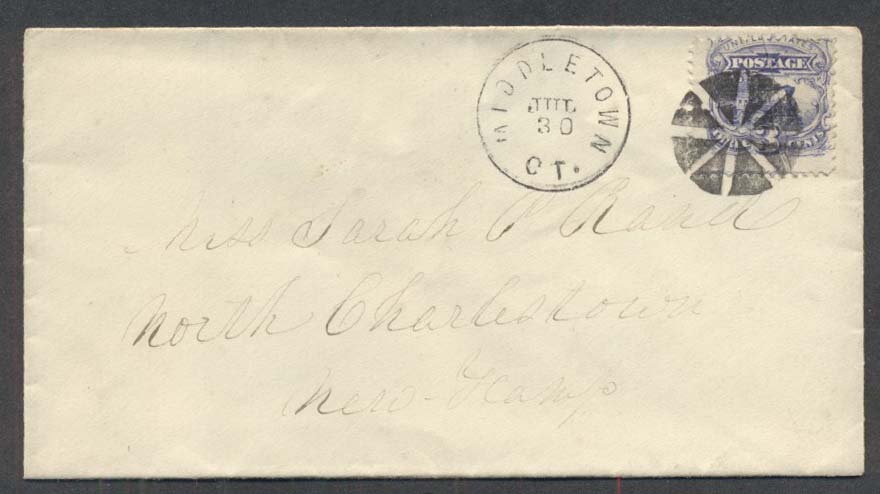 MIDDLETOWN
JUL
30
CT.
UNITED STATES
POSTAGE
Miss Sarah P Rand
North Charlestown
New-Hamp